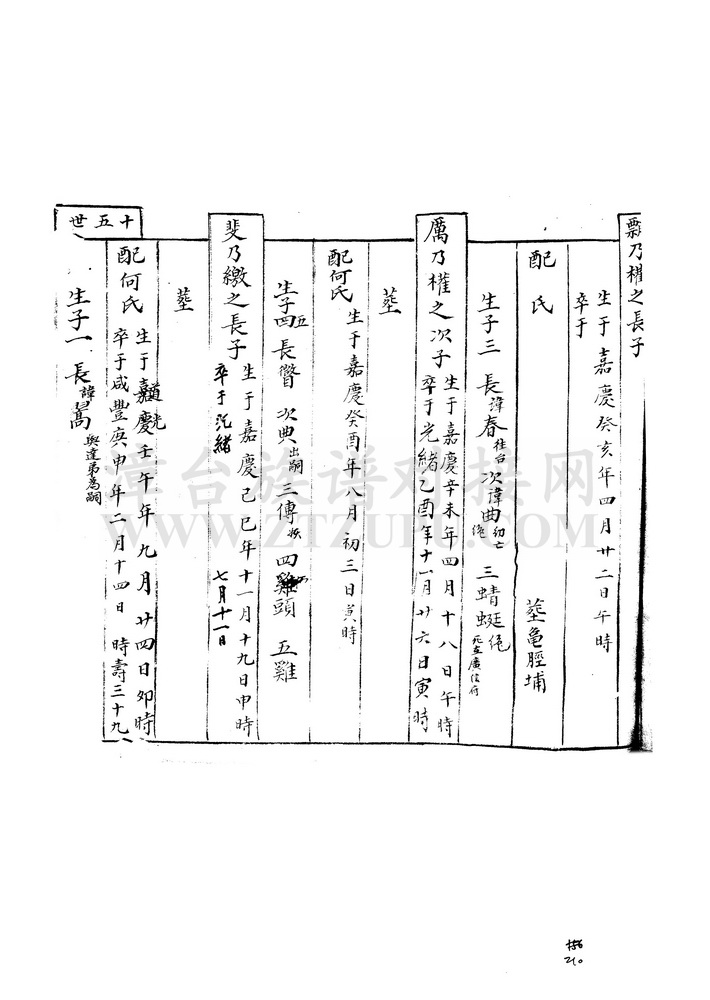 票乃權之長子
生于嘉慶癸亥年四月廿二日午時
卒于
配氏
塟龜脛埔
生子三 長諱春往台 次諱曲幼亡 三蜻蜓
厲乃權之次子
生于嘉慶辛未年四月十八日午時
卒于光緒乙酉年十一月廿六日寅時
塟
配何氏 生于嘉慶癸酉年八月初三日寅時
生子四五 長瞥 次典出嗣 三傳 四雞頭 五雞
斐乃繳之長子
生于嘉慶己巳年十一月十九日申時
卒于光緒 七月十一日
塟
配何氏
生于嘉慶道光壬午年九月廿四日卯時
卒于咸豐庚申年二月十四日 時壽三十九
生子一 長諱蒿與達弟為嗣
十五世
章台族谱对接网
WWW.ZTZUPU.COM
210